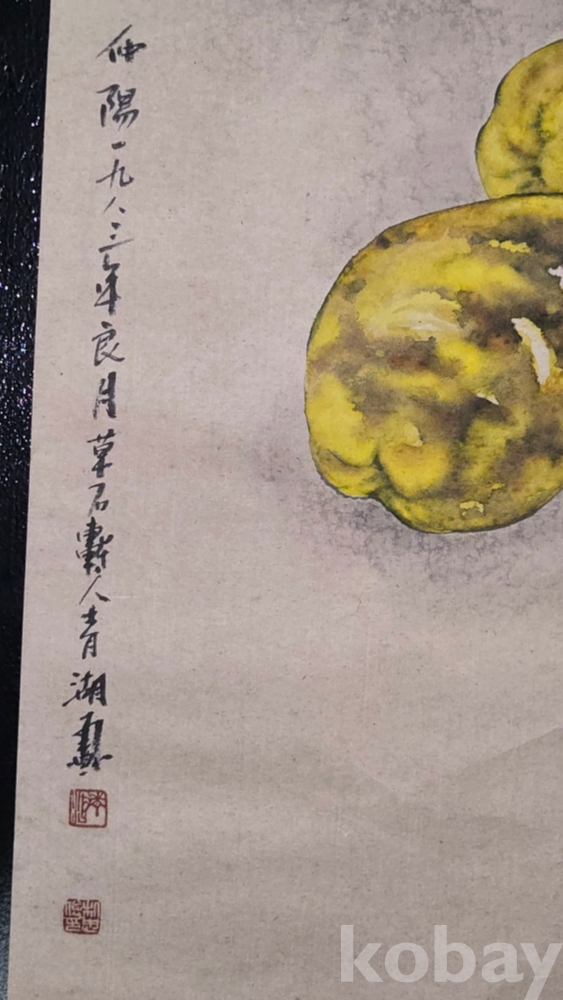 仲陽一九八三年良月草石軒人青湖畫
kobay